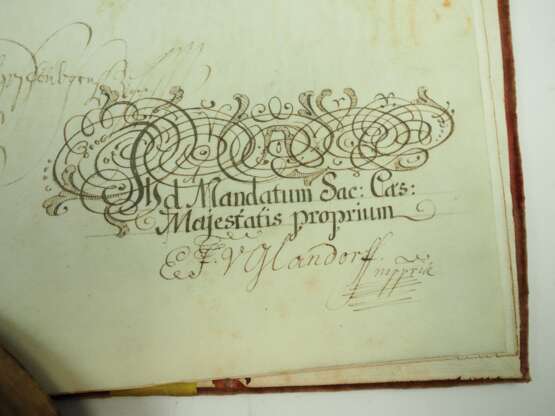 Ad Mandatum Sac: Cæs:
Majestatis proprium
E F V Glandorff
mppria